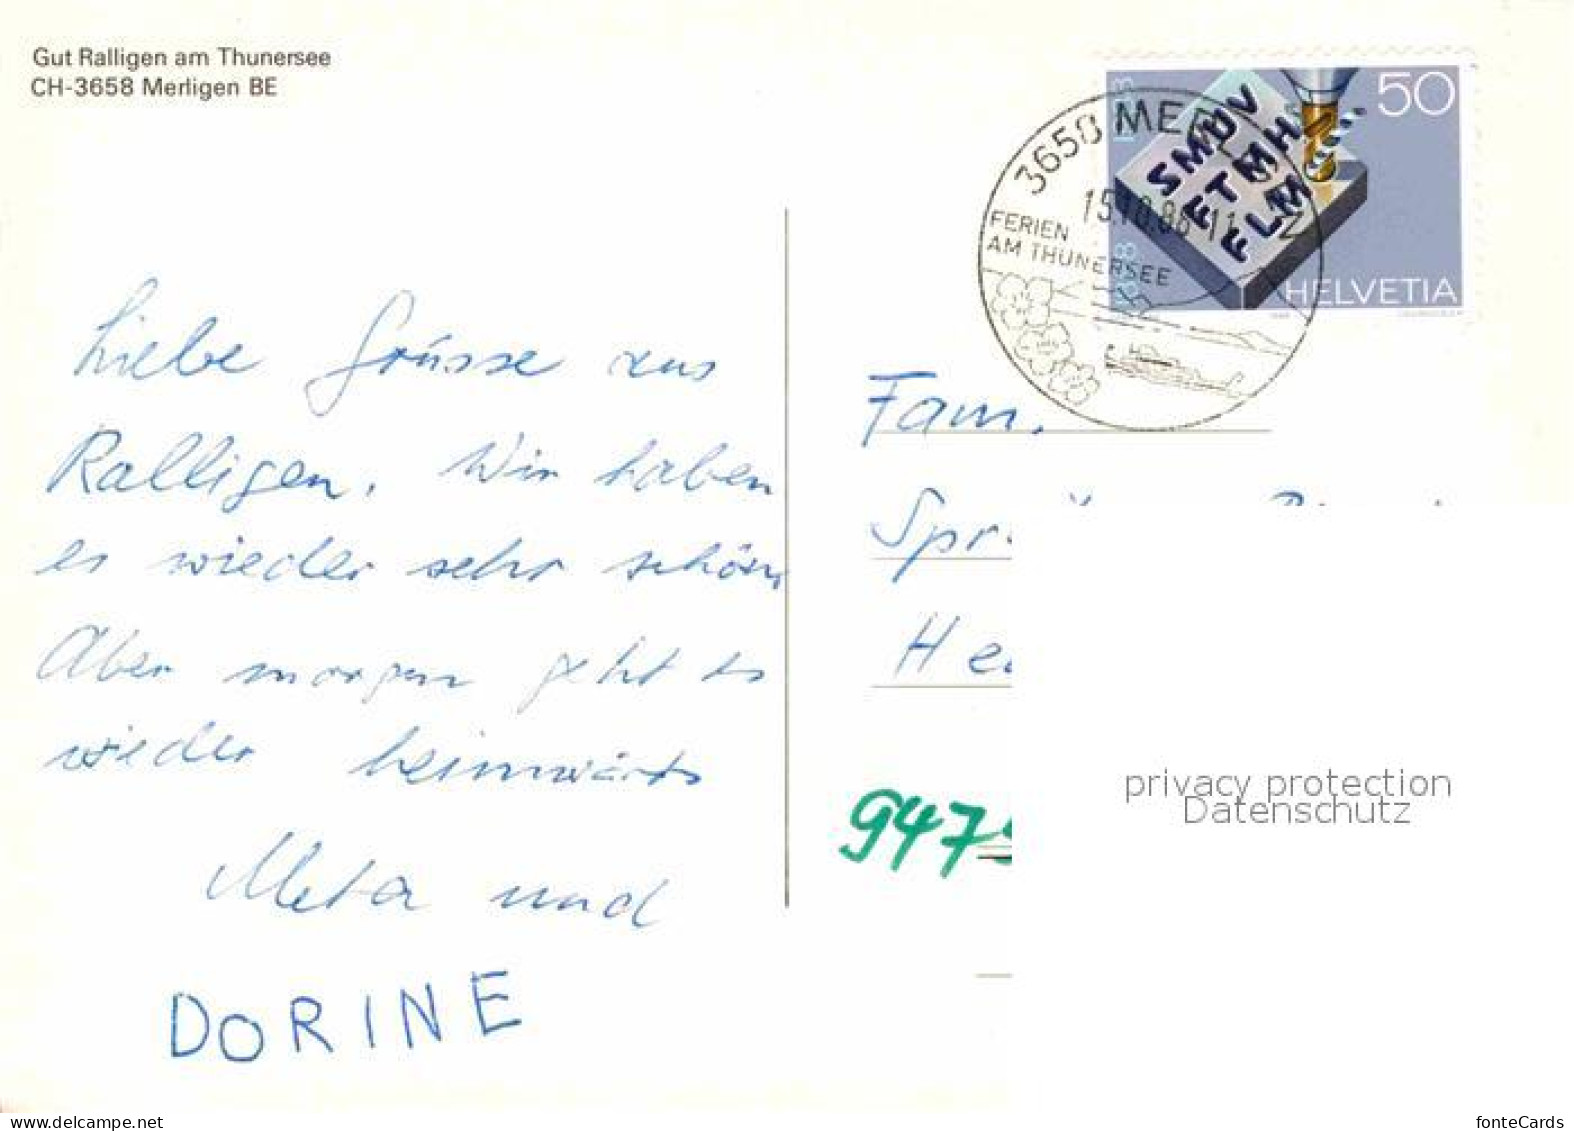 Gut Ralligen am Thunersee
CH-3658 Merligen BE
50
SMUV
FTMH
FLM
HELVETIA
3658 MERLIGEN
15.10.88-11
FERIEN
AM THUNERSEE
Liebe Grüsse aus
Ralligen. Wir haben
es wieder sehr schön
Aber morgen geht es
wieder heimwärts
Meta und
DORINE
Fam.
Spr
He
947
privacy protection
Datenschutz
www.delcampe.net
fonteCards